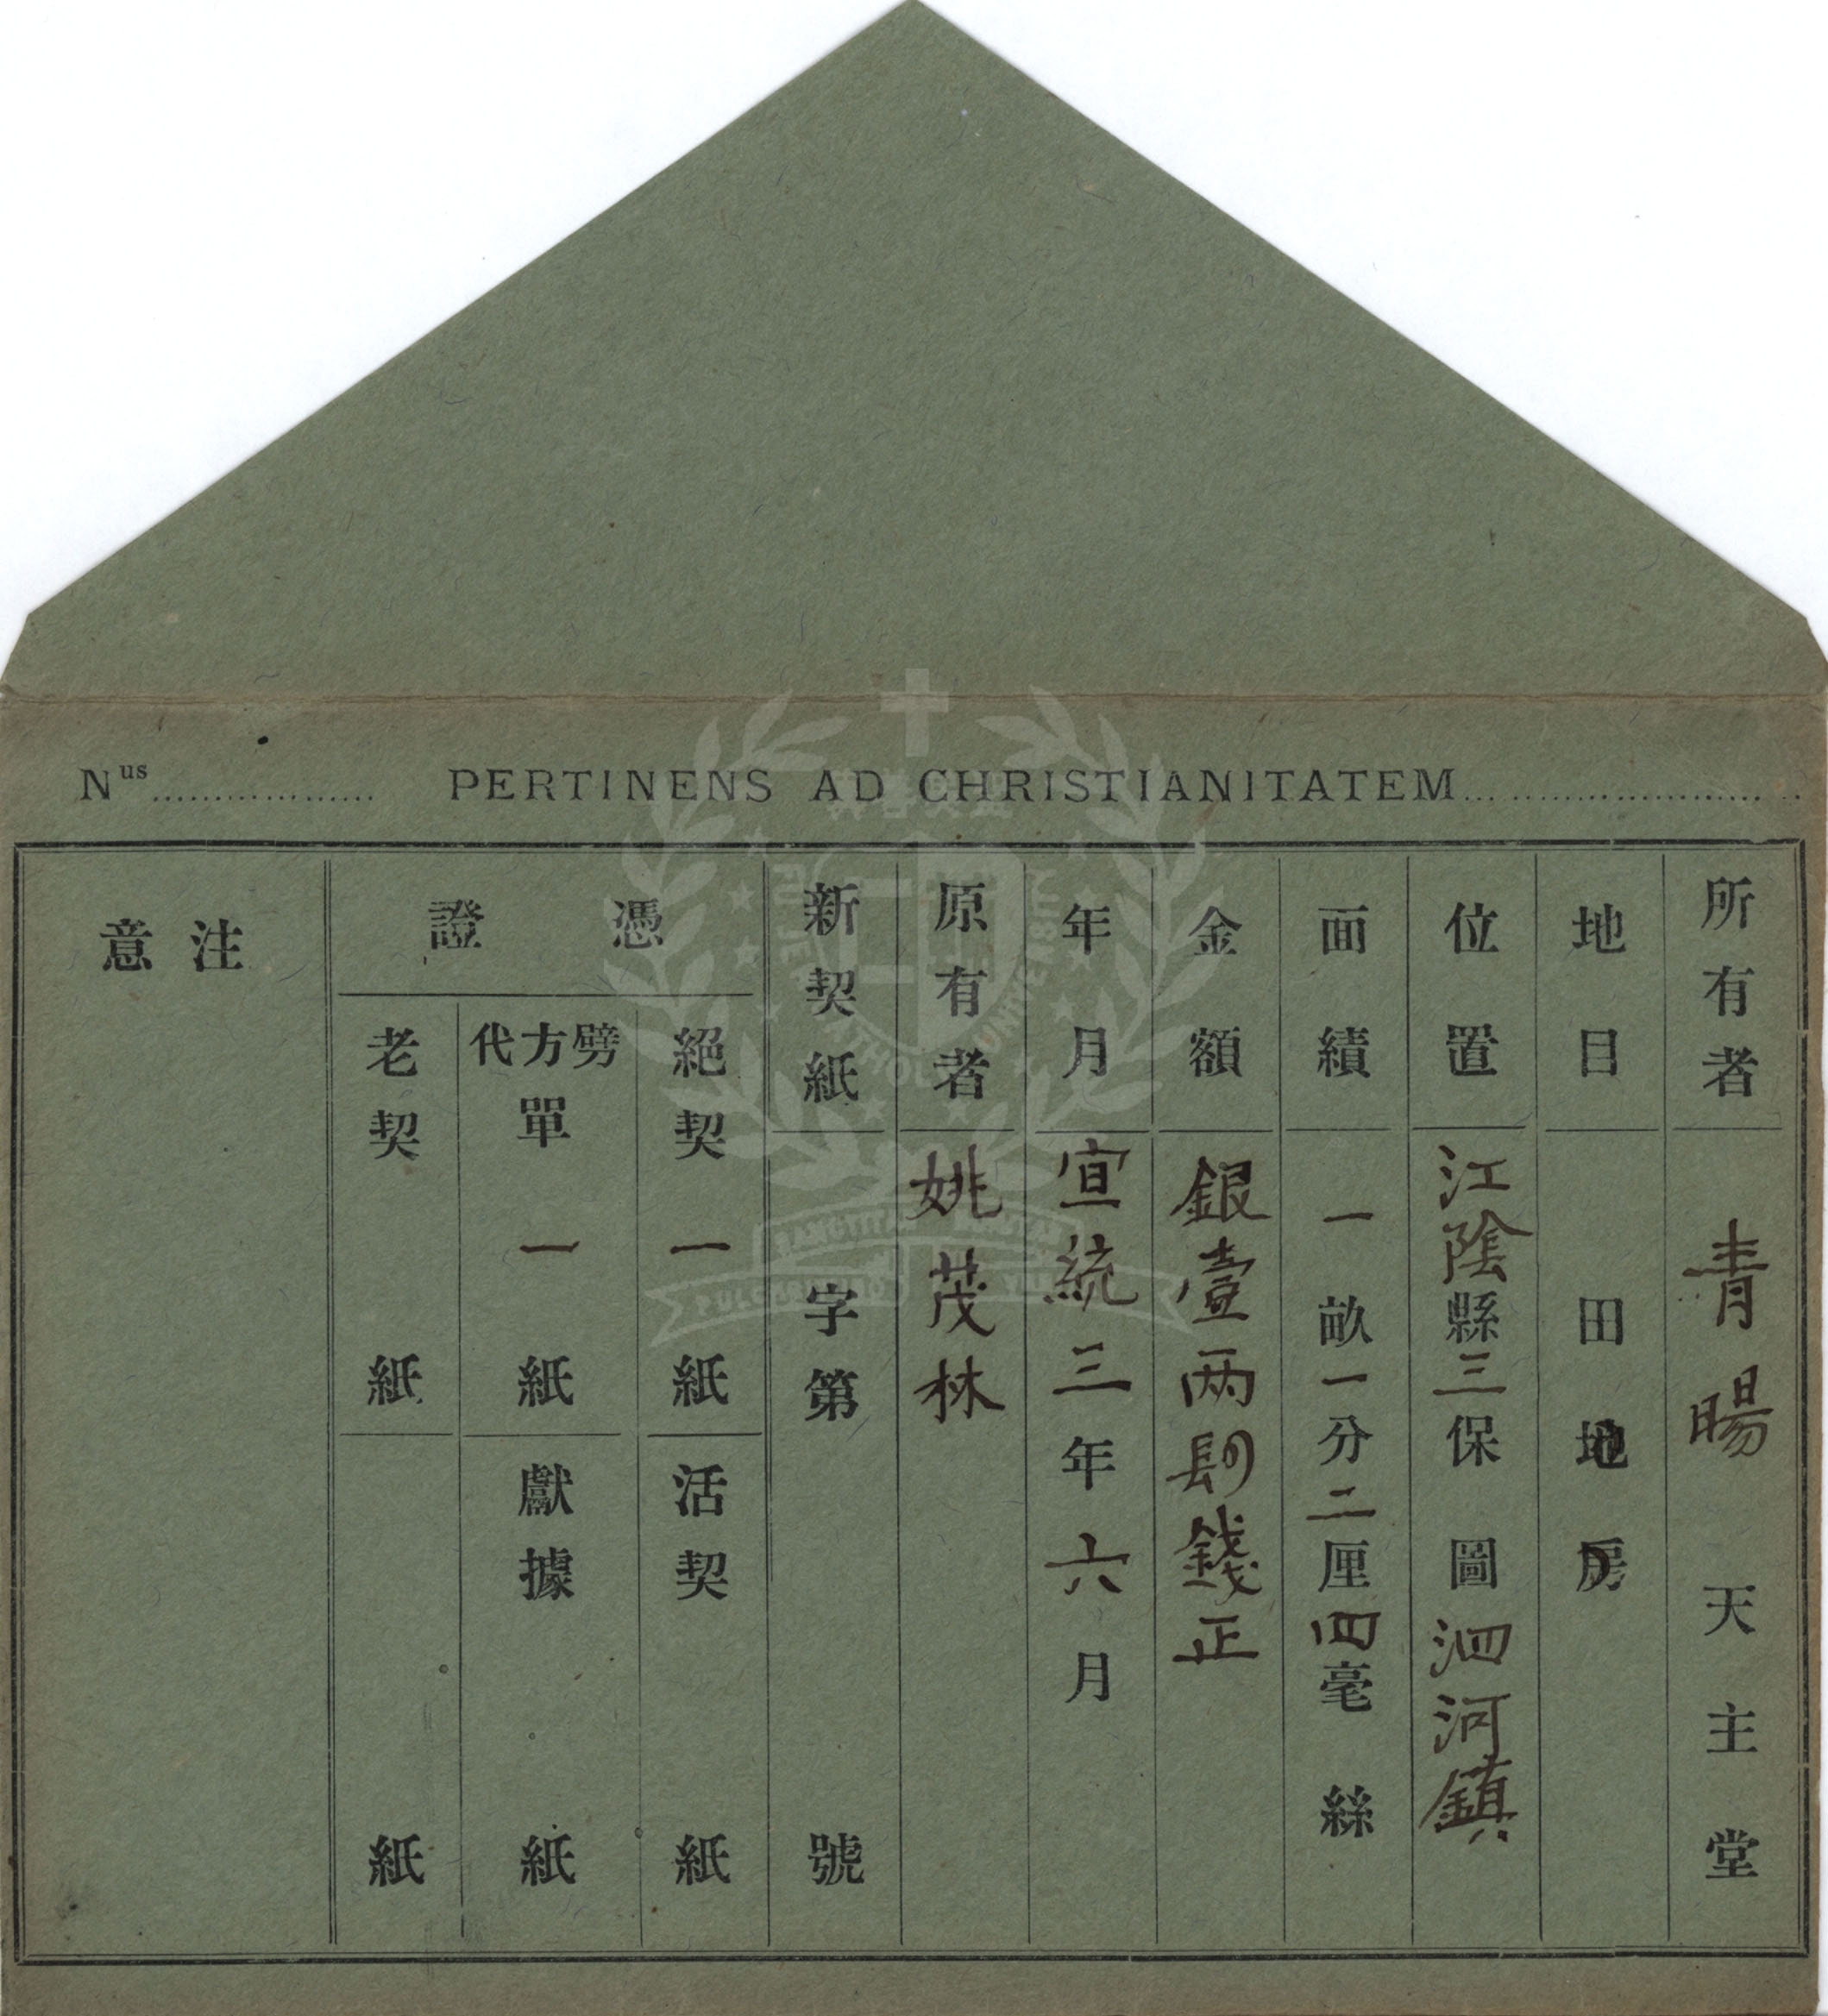 Nus.................. PERTINENS AD CHRISTIANITATEM...........................
所有者 青暘天主堂
地目 田地房
位置 江陰縣三保圖泗河鎮
面績 一畝一分二厘四毫絲
金額 銀壹两 錢正
年月 宣統三年六月
原有者 姚茂林
新契紙 字第號
憑證
絕契 一紙
活契 紙
劈方代單 一紙
獻據 紙
老契 紙
紙
注意